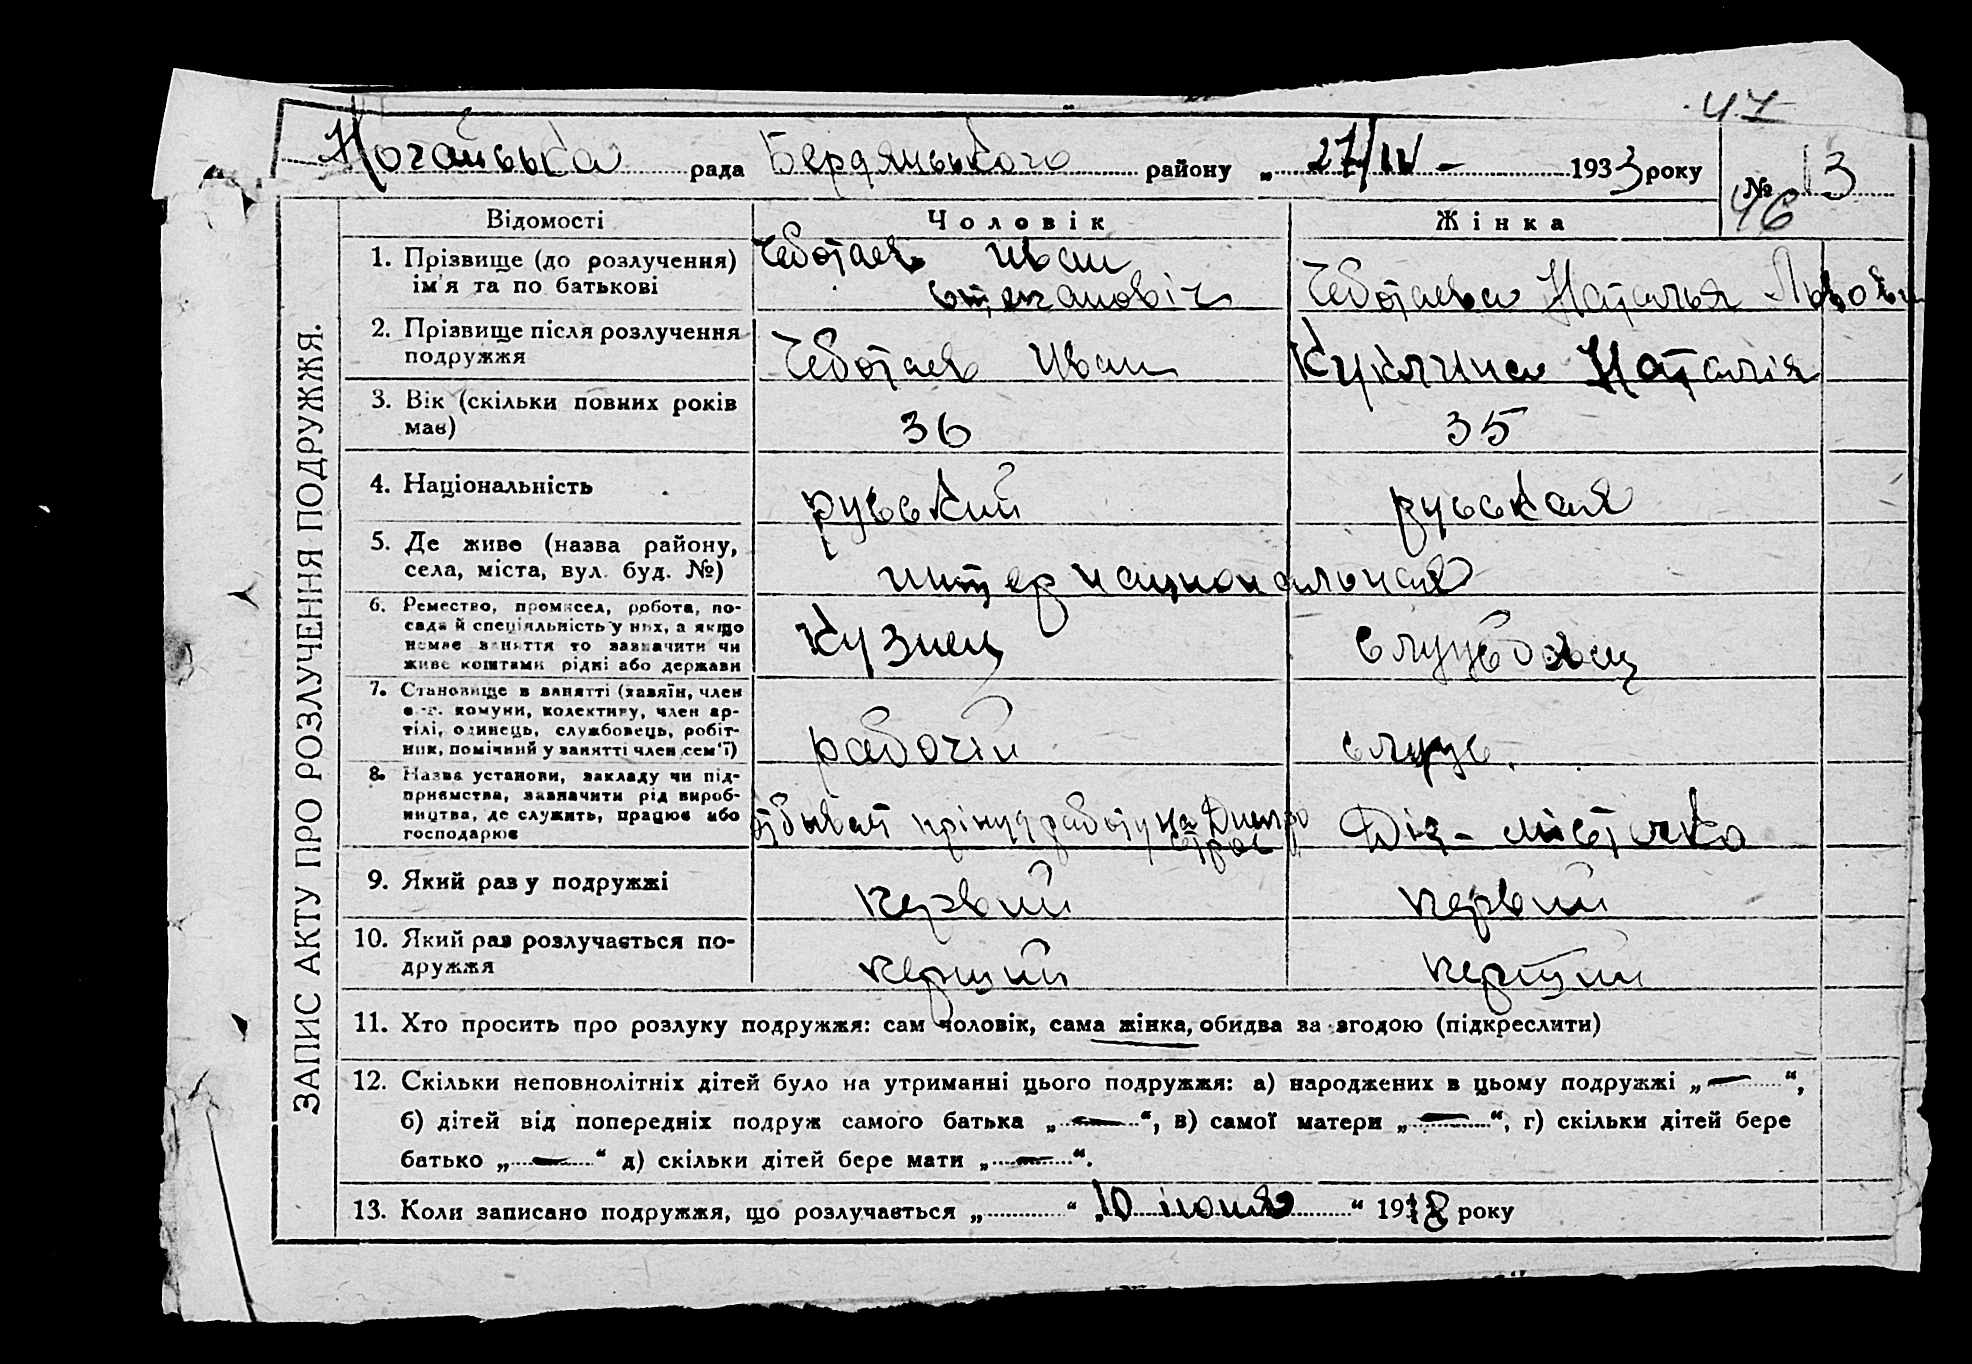 47
Ногайська рада Бердянського району „ 27/IV - 1933 року
№ 13
46
ЗАПИС АКТУ ПРО РОЗЛУЧЕННЯ ПОДРУЖЖЯ.
Відомості Чоловік Жінка
1. Прізвище (до розлучення) Чеботаев Иван
ім'я та по батькові Степановіч Чеботаева Наталья Львовн
2. Прізвище після розлучення
подружжя Чеботаев Иван Куклина Наталія
3. Вік (скільки повних років
має) 36 35
4. Національність русский русская
5. Де живе (назва району,
села, міста, вул. буд. №) интернациональная
6. Ремество, промисел, робота, по-
сада й спеціяльність у них, а якщо Кузнец службовец
немає заняття то зазначити чи
живе коштами рідні або держави
7. Становище в занятті (хазяїн, член
с.-г. комуни, колективу, член ар-
тілі, одинець, службовець, робіт- рабочій служ.
ник, помічний у занятті член сем'ї)
8. Назва установи, закладу чи під-
приємства, зазначити рід вироб-
ництва, де служить, працює або отбывает прінуд работу на Днепро Діт-містечко
господарює строе
9. Який раз у подружжі первий первий
10. Який раз розлучається по-
дружжя перший перший
11. Хто просить про розлуку подружжя: сам чоловік, сама жінка, обидва за згодою (підкреслити)
12. Скільки неповнолітніх дітей було на утриманні цього подружжя: а) народжених в цьому подружжі „ — “,
б) дітей від попередніх подруж самого батька „ — “, в) самої матери „ — “, г) скільки дітей бере
батько „ — “ д) скільки дітей бере мати „ — “.
13. Коли записано подружжя, що розлучається „ “ 10 іюня “ 1918 року